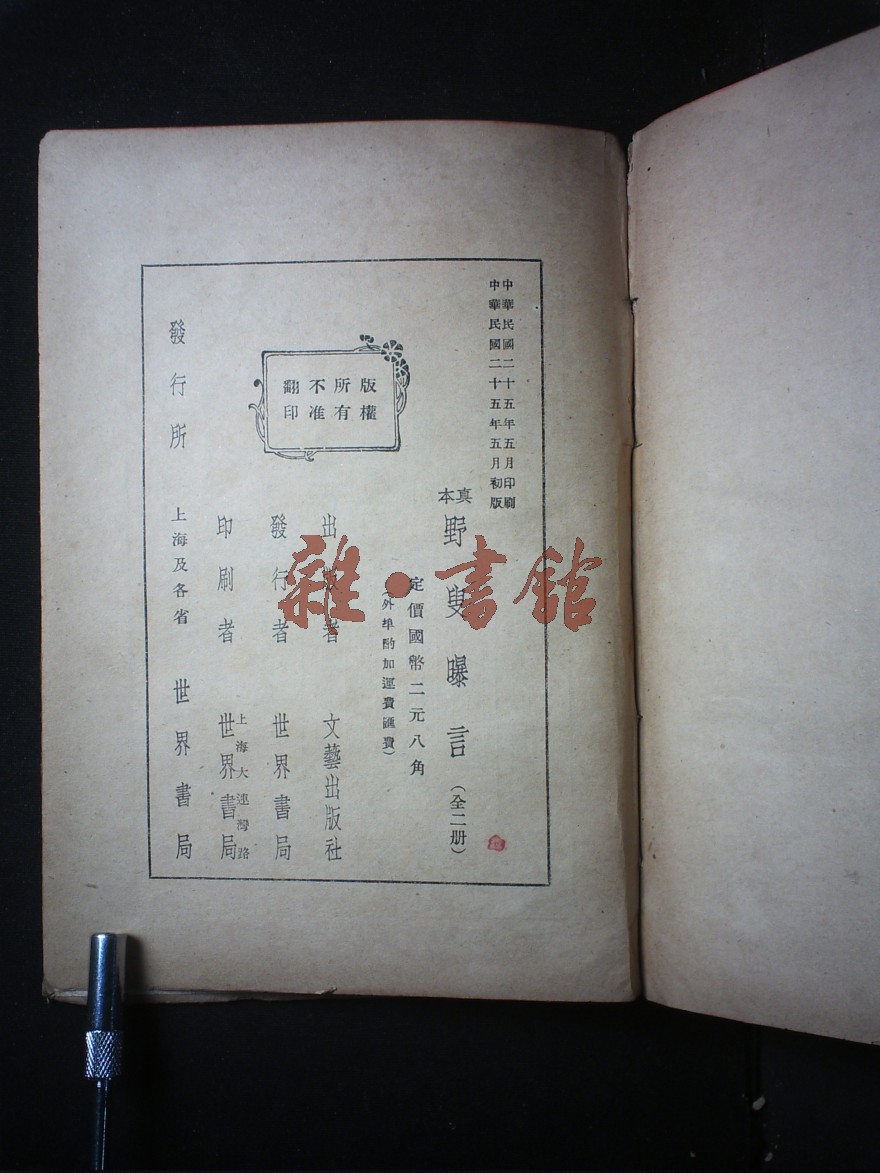 中華民國二十五年五月印刷
中華民國二十五年五月初版
真本
野叟曝言(全二册)
定價國幣二元八角
(外埠酌加運費匯費)
版權所有不准翻印
出版者 文藝出版社
發行者 世界書局
上海大連灣路
印刷者 世界書局
發行所 上海及各省 世界書局
雜·書館